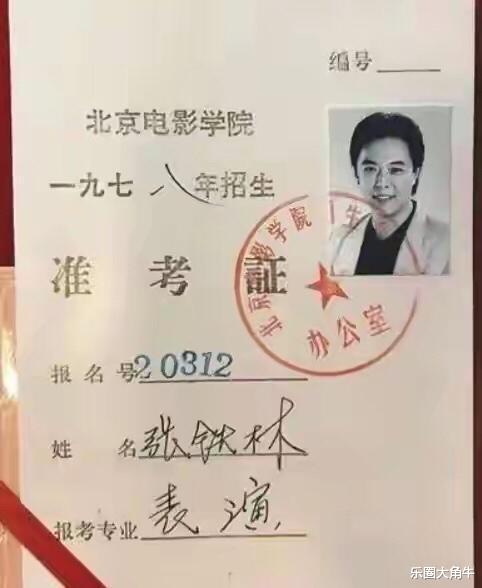 编号
北京电影学院
一九七八年招生
准考証
北京电影学院 生
办公室
报名号 20312
姓名 张铁林
报考专业 表演
乐圈大角牛